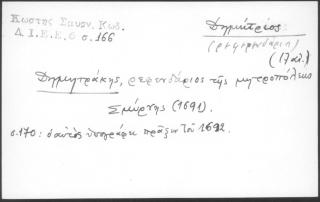 Κωστής Σμυρν. Κωδ.
Δ Ι.Ε.Ε. 6 σ. 166
Δημήτριος:
(ρεφερενδάριος)
(17 αἰ.)
Δημητράκης, ρεφενδάριος τῆς μητροπόλεως
Σμύρνης (1691).
σ. 170: ὁ αὐτὸς ὑπογράφει πρᾶξιν τοῦ 1692.